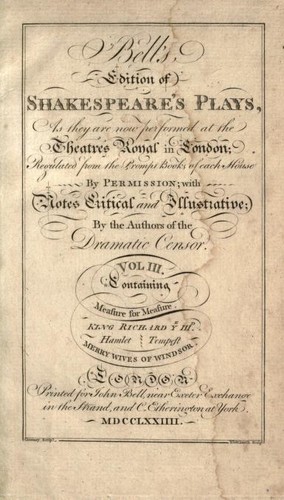 Bell's
Edition of
SHAKESPEARE'S PLAYS,
As they are now performed at the
Theatres Royal in London;
Regulated from the Prompt Books of each House
By PERMISSION; with
Notes Critical and Illustrative;
By the Authors of the
Dramatic Censor.
VOL III.
Containing
Measure for Measure.
KING RICHARD Yᵉ IIIᵈ.
Hamlet Tempest
MERRY WIVES OF WINDSOR.
LONDON:
Printed for John Bell, near Exeter Exchange
in the Strand, and C. Etherington at York.
MDCCLXXIIII.